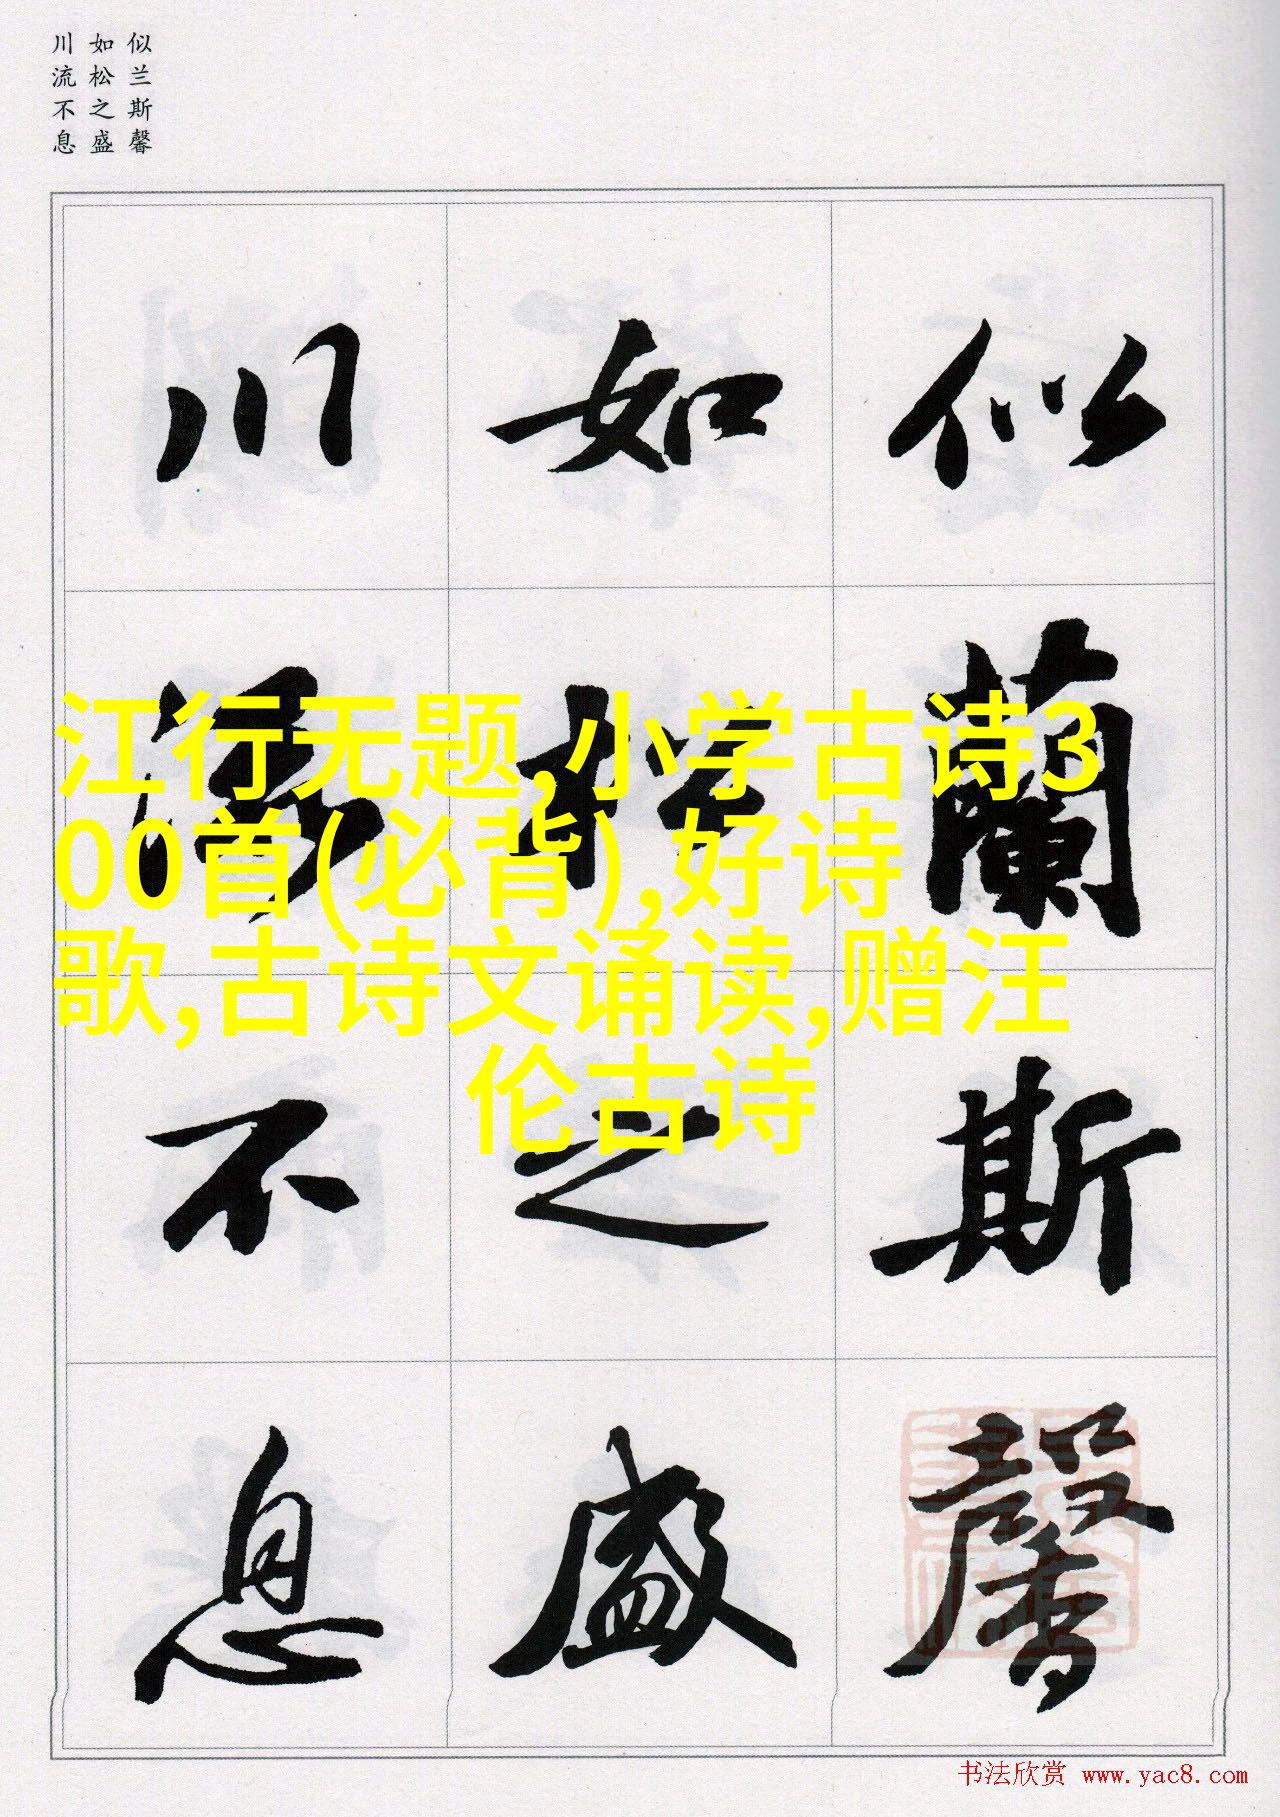 似兰斯馨
如松之盛
川流不息
似蘭斯馨
如松之盛
川流不息
江行无题,小学古诗3
00首(必背),好诗
歌,古诗文诵读,赠汪
伦古诗
书法欣赏 www.yac8.com